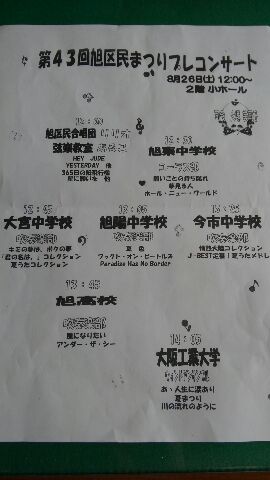 第43回旭区民まつりプレコンサート
8月26日(土) 12:00〜
2階 小ホール
旭区民合唱団
弦楽教室
HEY JUDE
YESTERDAY 他
365日の紙飛行機
星に願いを 他
旭東中学校
コーラス部
夢見る人
ホール・ニュー・ワールド
大宮中学校
吹奏楽部
キミの夢は、ボクの夢
「君の名は。」コレクション
夏うたコレクション
旭陽中学校
吹奏楽部
夏色
ワックト・オン・ビートルズ
Paradise Has No Border
今市中学校
吹奏楽部
情熱大陸コレクション
J-BEST定番！夏うたメドレー
13:45
旭高校
吹奏楽部
風になりたい
アンダー・ザ・シー
14:05
大阪工業大学
あゝ人生に涙あり
夏まつり
川の流れのように